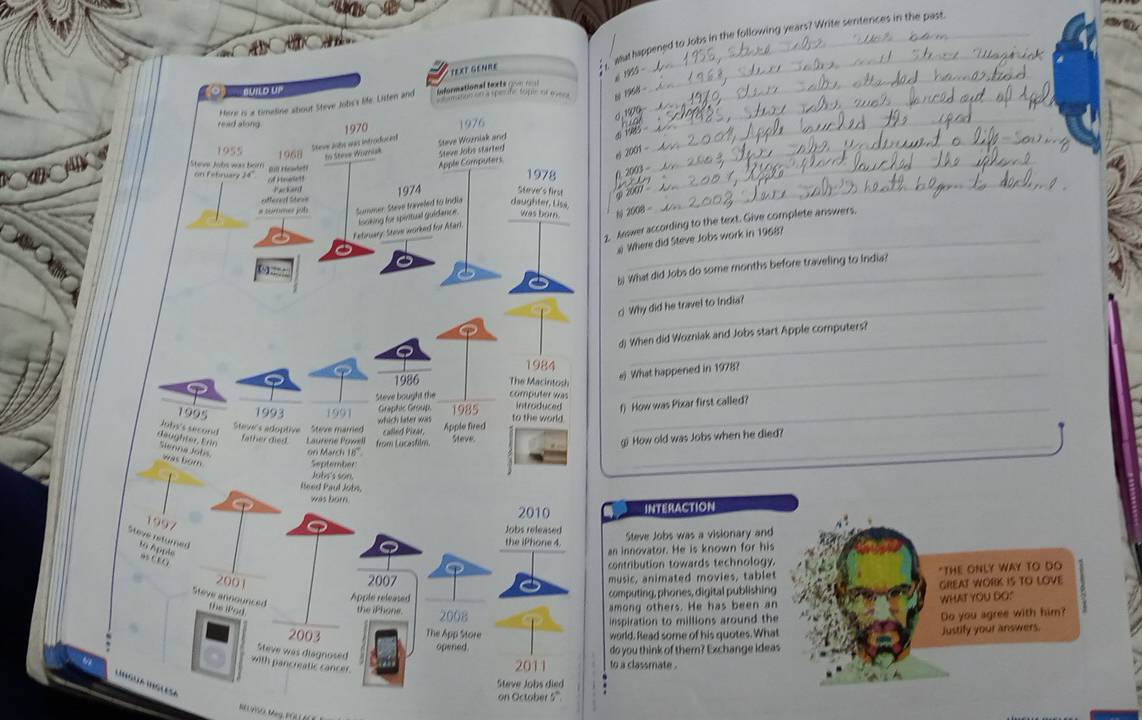 BUILD UP
TEXT GENRE
Informational texts give real
information on a specific topic or event.
Here is a timeline about Steve Jobs's life. Listen and
read along.
1955
Steve Jobs was born
on February 24th.
1968
Bill Hewlett
of Hewlett
Packard
offered Steve
a summer job.
1970
Steve Jobs was introduced
to Steve Wozniak.
1974
Summer: Steve traveled to India
looking for spiritual guidance.
February: Steve worked for Atari.
1976
Steve Wozniak and
Steve Jobs started
Apple Computers.
1978
Steve's first
daughter, Lisa,
was born.
1984
The Macintosh
computer was
introduced
to the world.
1985
Apple fired
Steve.
1986
Steve bought the
Graphic Group,
which later was
called Pixar,
from Lucasfilm.
1991
Steve married
Laurene Powell
on March 18th.
September:
Jobs's son,
Reed Paul Jobs,
was born.
1993
Steve's adoptive
father died.
1995
Jobs's second
daughter, Erin
Sienna Jobs,
was born.
1997
Steve returned
to Apple
as CEO.
2001
Steve announced
the iPod.
2003
Steve was diagnosed
with pancreatic cancer.
2007
Apple released
the iPhone.
2008
The App Store
opened.
2010
Jobs released
the iPhone 4.
2011
Steve Jobs died
on October 5th.
62
LÍNGUA INGLESA
1. What happened to Jobs in the following years? Write sentences in the past.
a) 1955 - In 1955, Steve Jobs was born
b) 1968 - in 1968, Steve Jobs
c) 1970 - in 1970, Steve Jobs attended
d) 1985 - in 1985, Steve Jobs was fanced out of Apple
e) 2001 - in 2001, Apple lauched the ipod
f) 2003 - in 2003, Steve Jobs underwent a life-saving
g) 2007 - in 2007, Apple lauched the iphone
h) 2008 - in 2008 Steve Jobs's heath began to decline.
2. Answer according to the text. Give complete answers.
a) Where did Steve Jobs work in 1968?
b) What did Jobs do some months before traveling to India?
c) Why did he travel to India?
d) When did Wozniak and Jobs start Apple computers?
e) What happened in 1978?
f) How was Pixar first called?
g) How old was Jobs when he died?
INTERACTION
Steve Jobs was a visionary and
an innovator. He is known for his
contribution towards technology,
music, animated movies, tablet
computing, phones, digital publishing
among others. He has been an
inspiration to millions around the
world. Read some of his quotes. What
do you think of them? Exchange ideas
to a classmate.
"THE ONLY WAY TO DO
GREAT WORK IS TO LOVE
WHAT YOU DO."
Do you agree with him?
Justify your answers.